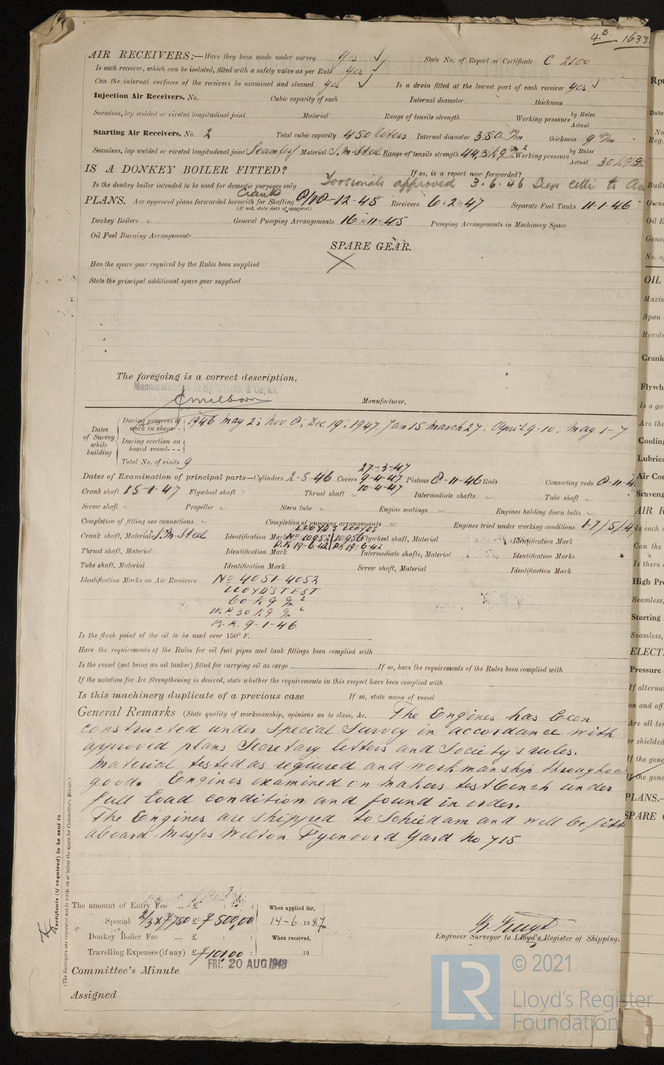 4B 1633
AIR RECEIVERS:—Have they been made under survey Yes State No. of Report or Certificate C 2100
Is each receiver, which can be isolated, fitted with a safety valve as per Rule Yes
Can the internal surfaces of the receivers be examined and cleaned yes Is a drain fitted at the lowest part of each receiver yes
Injection Air Receivers, No. Cubic capacity of each Internal diameter thickness
Seamless, lap welded or riveted longitudinal joint Material Range of tensile strength Working pressure by Rules Actual
Starting Air Receivers, No. 2 Total cubic capacity 450 liters Internal diameter 350 m/m thickness 9 m/m
Seamless, lap welded or riveted longitudinal joint Seamless Material S.M. Steel Range of tensile strength Working pressure by Rules Actual 30 kg
IS A DONKEY BOILER FITTED? If so, is a report now forwarded?
Is the donkey boiler intended to be used for domestic purposes only Torsionals approved 3.6.46
PLANS. Are approved plans forwarded herewith for Shafting Crank -12-45 Receivers 6.2.47 Separate Fuel Tanks 11-1-46
(If not, state date of approval)
Donkey Boilers General Pumping Arrangements 16-11-45 Pumping Arrangements in Machinery Space
Oil Fuel Burning Arrangements
SPARE GEAR.
Has the spare gear required by the Rules been supplied
State the principal additional spare gear supplied
The foregoing is a correct description,
Manufacturer.
Dates of Survey while building
During progress of work in shops 1946 may 2; Nov 8; Dec 19; 1947 Jan 15 March 27. April 9-10. may 1-7
During erection on board vessel
Total No. of visits 9
27-3-47
Dates of Examination of principal parts—Cylinders 2-5-46 Covers 9-4-47 Pistons 8-11-46 Rods Connecting rods 8-11-4
Crank shaft 15-1-47 Flywheel shaft Thrust shaft 10-4-47 Intermediate shafts Tube shaft
Screw shaft Propeller Stern tube Engine seatings Engines holding down bolts
Completion of fitting sea connections Completion of pumping arrangements Engines tried under working conditions 1-7/5/4
LLOYD'S LLOYDS
Crank shaft, Material S.M. Steel Identification Mark No 10952 10956 Flywheel shaft, Material Identification Mark
Thrust shaft, Material Identification Mark 19-6-42 19-6-42 Intermediate shafts, Material Identification Marks
Tube shaft, Material Identification Mark Screw shaft, Material Identification Mark
Identification Marks on Air Receivers No 4051-4052
LLOYD'S TEST
60 kg
W.P. 30 kg
9-1-46
Is the flash point of the oil to be used over 150° F.
Have the requirements of the Rules for oil fuel pipes and tank fittings been complied with
Is the vessel (not being an oil tanker) fitted for carrying oil as cargo If so, have the requirements of the Rules been complied with
If the notation for Ice Strengthening is desired, state whether the requirements in this respect have been complied with
Is this machinery duplicate of a previous case If so, state name of vessel
General Remarks (State quality of workmanship, opinions as to class, &c. The Engines has been
constructed under Special Survey in accordance with
approved plans Secretary letters and Society's rules.
material tested as required and workmanship throughou
good. Engines examined on makers testbench under
full load condition and found in order.
The Engines are shipped to Schiedam and will be fitt
aboard Messrs Wilton Fyenoord Yard No 715
Certificate (if required) to be sent to
(The Surveyors are requested not to write on or below the space for Committee's Minute.)
The amount of Entry Fee £ : : When applied for,
Special £ 500,00 14-6 1947
Donkey Boiler Fee £ : : When received,
Travelling Expenses (if any) £ 101,00 19
Engineer Surveyor to Lloyd's Register of Shipping.
Committee's Minute FRI. 20 AUG 1948
Assigned
LR © 2021
Lloyd's Register
Foundation